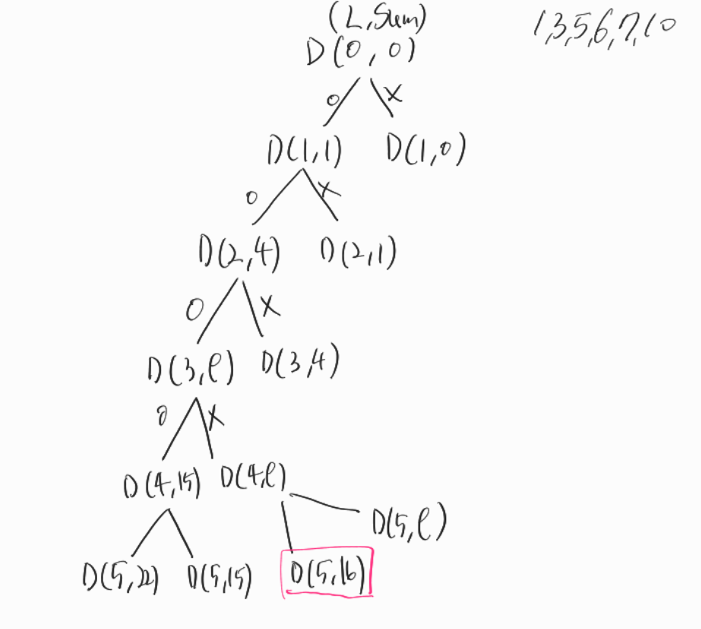 (L,Sum)
1,3,5,6,7,10
D(0,0)
O X
D(1,1) D(1,0)
O X
D(2,4) D(2,1)
O X
D(3,9) D(3,4)
O X
D(4,15) D(4,9)
D(5,9)
D(5,22) D(5,15) D(5,16)